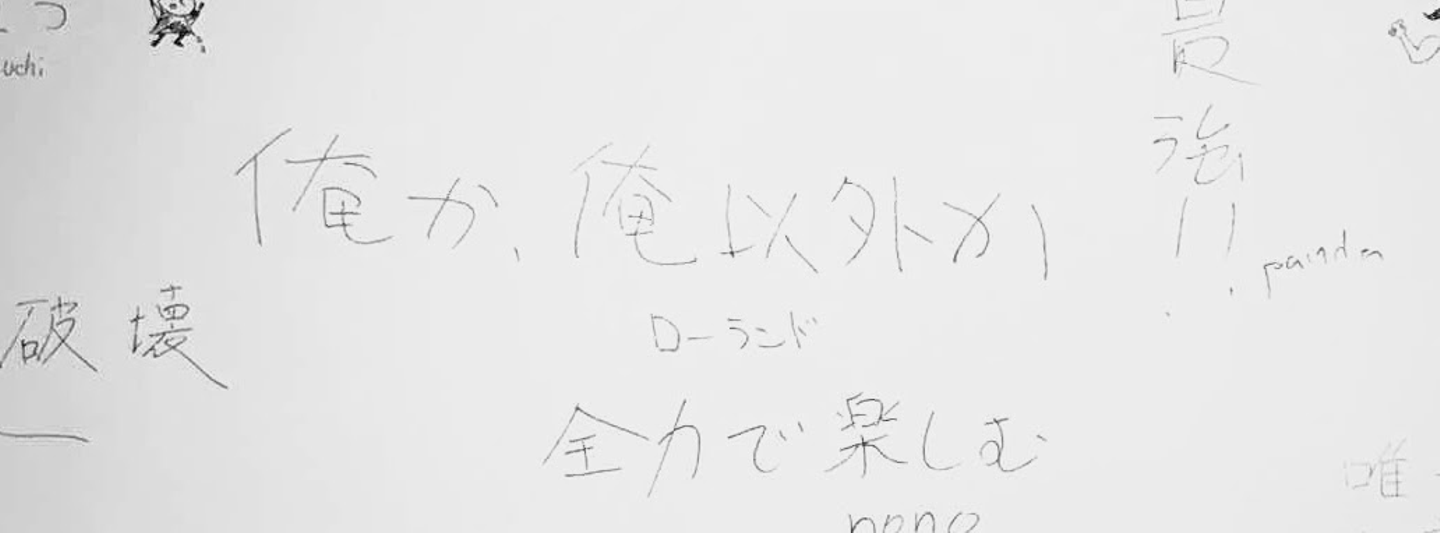 uchi
俺か、俺以外か
ローランド
最強!!
panda
破壊
全力で楽しむ
nono
唯